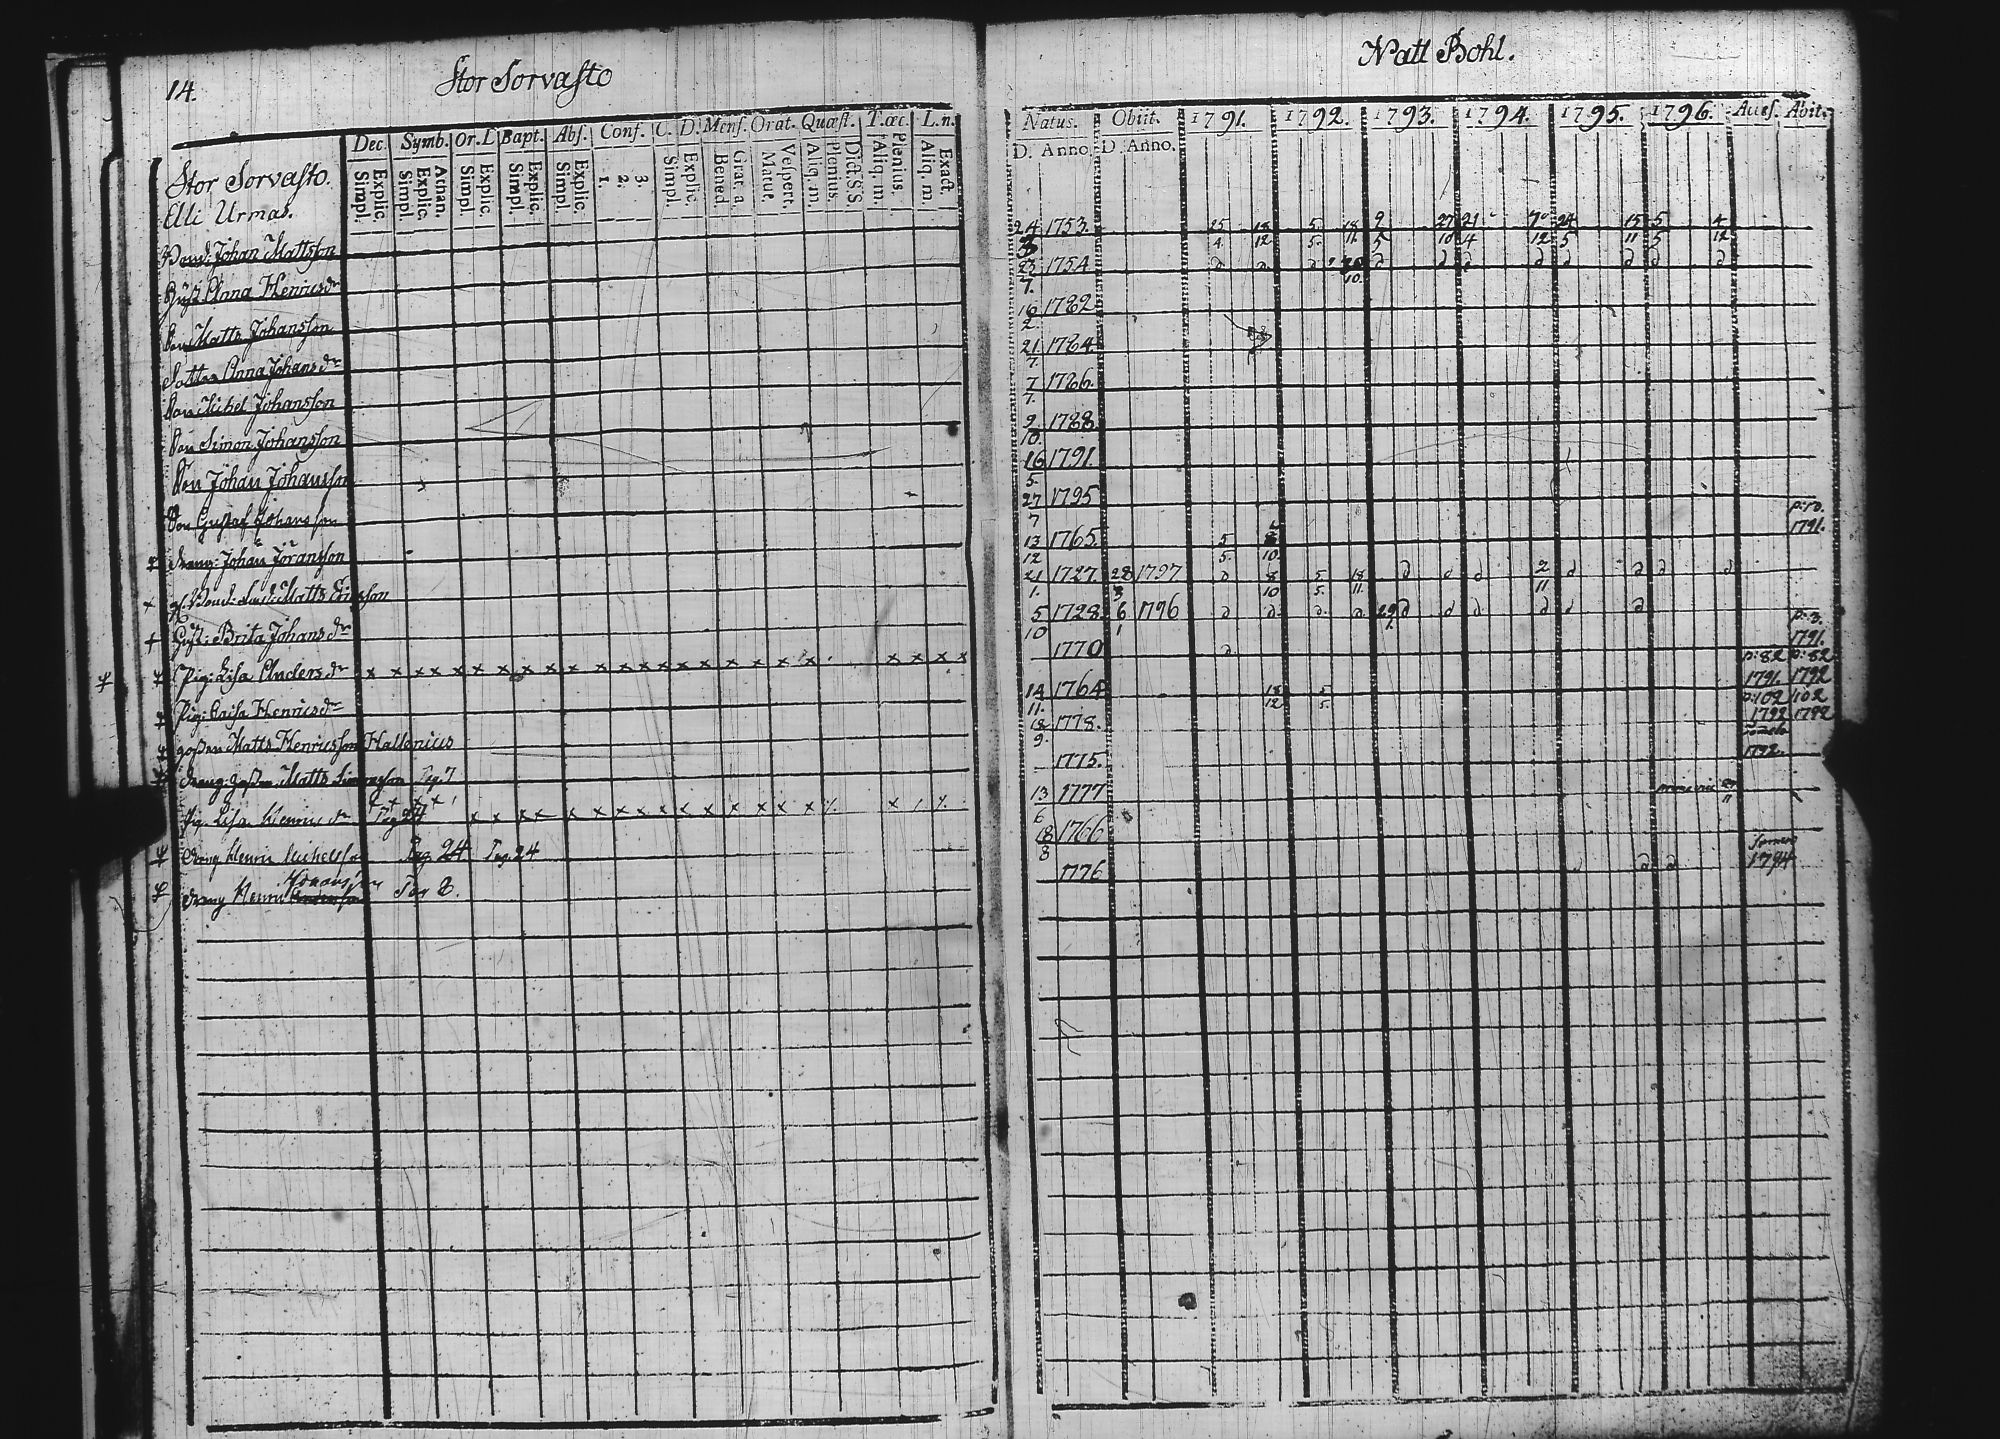 14.
Stor Sorvasto
Natt Bohl.
Dec. Symb. Or. L Bapt. Abs. Conf. C. D. Mens. Orat. Quæst. T. œc. L. n.
Simpl. Explic. Simpl. Explic. Athan. Simpl. Explic. Simpl. Explic. Simpl. Explic. 1. 2. 3. Simpl. Explic. Bened. Grat. a. Matut. Vespert. Aliq. m. Plenius. Dict. S. S. Aliq. m. Plenius. Aliq. m. Exact.
Natus. Obiit. 1791. 1792. 1793. 1794. 1795. 1796. Access. Abit.
D. Anno. D. Anno.
Stor Sorvasto.
Elli Urmas.
Johan Mattsson 24 1753. 25 18 5 18 9 27 21 7 24 15 5 4
4 12 5 11 5 10 4 12 5 11 5 12
Hust. Anna Henricsdr 23 7. 1754
Son Matts Johansson 16 2. 1782
Dotter Anna Johansdr 21 7. 1784
Son Michel Johansson 7 7. 1786.
Son Simon Johansson 9 10. 1788
Son Johan Johansson 16 5. 1791.
Son Gustaf Johansson 27 7 1795
Dreng: Johan Jöransson 13 12 1765. 5 5. 10 p: 10. 1791.
Matts Ericsson 21 1. 1727. 28 3 1797 8 10 5 5. 18 11. 2 11
Hust: Brita Johansdr 5 10 1728. 6 1 1796
Pig: Lisa Andersdr x x x x x x x x x x x x x x x x x x x x x x x 1770 p: 3. 1791.
Pig: Caisa Henricsdr 14 11. 1764 18 12 5 5. p: 82 1791. p: 82 1792
gossen Matts Henricsson Hallenius 18 9. 1778. p: 102 1792 102 1792
dreng gossen Matts Simonsson Pag. 7 1775. 1792.
Pig. Lisa Henricsdr Pag 24 x x x x x x x x x x x x x x 13 6 1777
dreng Henric Michelsson Pag. 24 Pag. 24 18 8 1766
dreng Henric Johansson Pag 8. 1776 1794